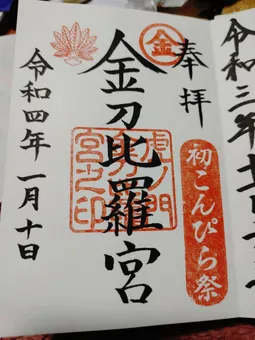 令和三年十
奉拝
初こんぴら祭
金
金刀比羅宮
虎ノ門
宮之印
令和四年一月十日